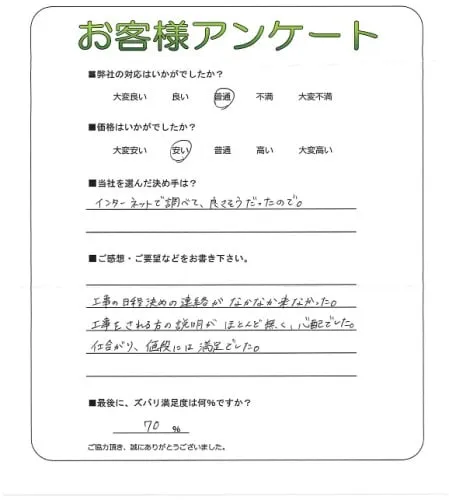 お客様アンケート
■弊社の対応はいかがでしたか？
大変良い 良い 普通 不満 大変不満
■価格はいかがでしたか？
大変安い 安い 普通 高い 大変高い
■当社を選んだ決め手は？
インターネットで調べて、良さそうだったので。
■ご感想・ご要望などをお書き下さい。
工事の日程決めの連絡が なかなか来なかった。
工事をされる方の説明が ほとんど無く、心配でした。
仕上がり、値段には満足でした。
■最後に、ズバリ満足度は何％ですか？
70 ％
ご協力頂き、誠にありがとうございました。